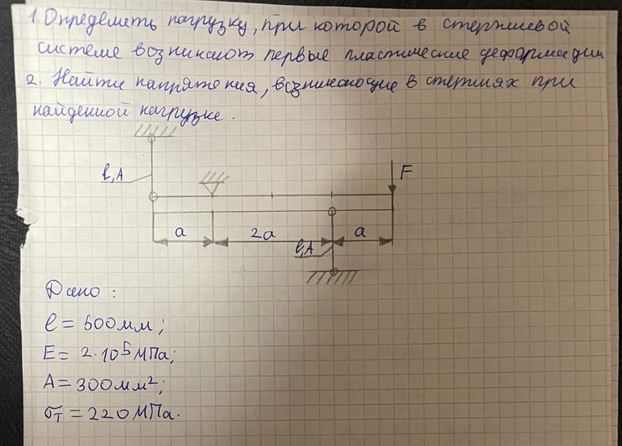 1. Определить нагрузку, при которой в стержневой
системе возникают первые пластические деформации
2. Найти напряжения, возникающие в стержнях при
найденной нагрузке.
l, A
F
a
2a
a
l, A
Дано:
l = 500мм;
E = 2·10⁵ МПа;
A = 300мм²;
σт = 220 МПа.